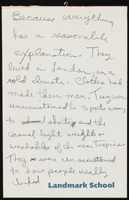 Because everything
has a reasonable
explanation. They
lived in London, in a
cold climate. Clothes had
made them men.
unaccustomed to sports wear,
to shorts and the
casual light weight
of the new
They were unaccustomed
to how people really
looked
Landmark School